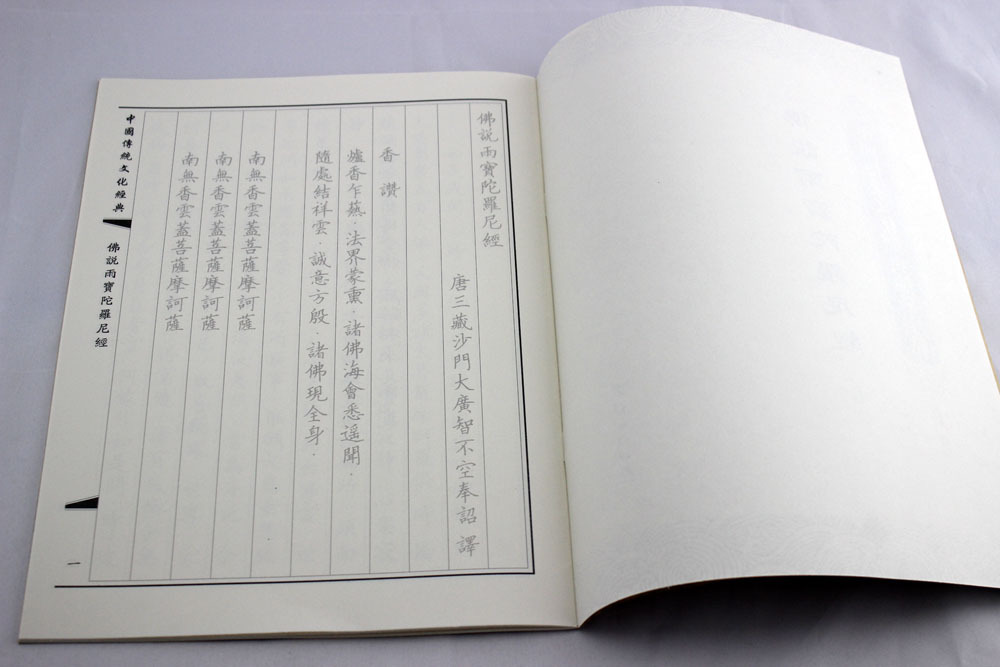 佛説雨寶陀羅尼經
唐三藏沙門大廣智不空奉詔 譯
香 讚
爐香乍爇．法界蒙熏．諸佛海會悉遥聞．
隨處結祥雲．誠意方殷．諸佛現全身．
南無香雲蓋菩薩摩訶薩
南無香雲蓋菩薩摩訶薩
南無香雲蓋菩薩摩訶薩
中國傳統文化經典
佛説雨寶陀羅尼經
一